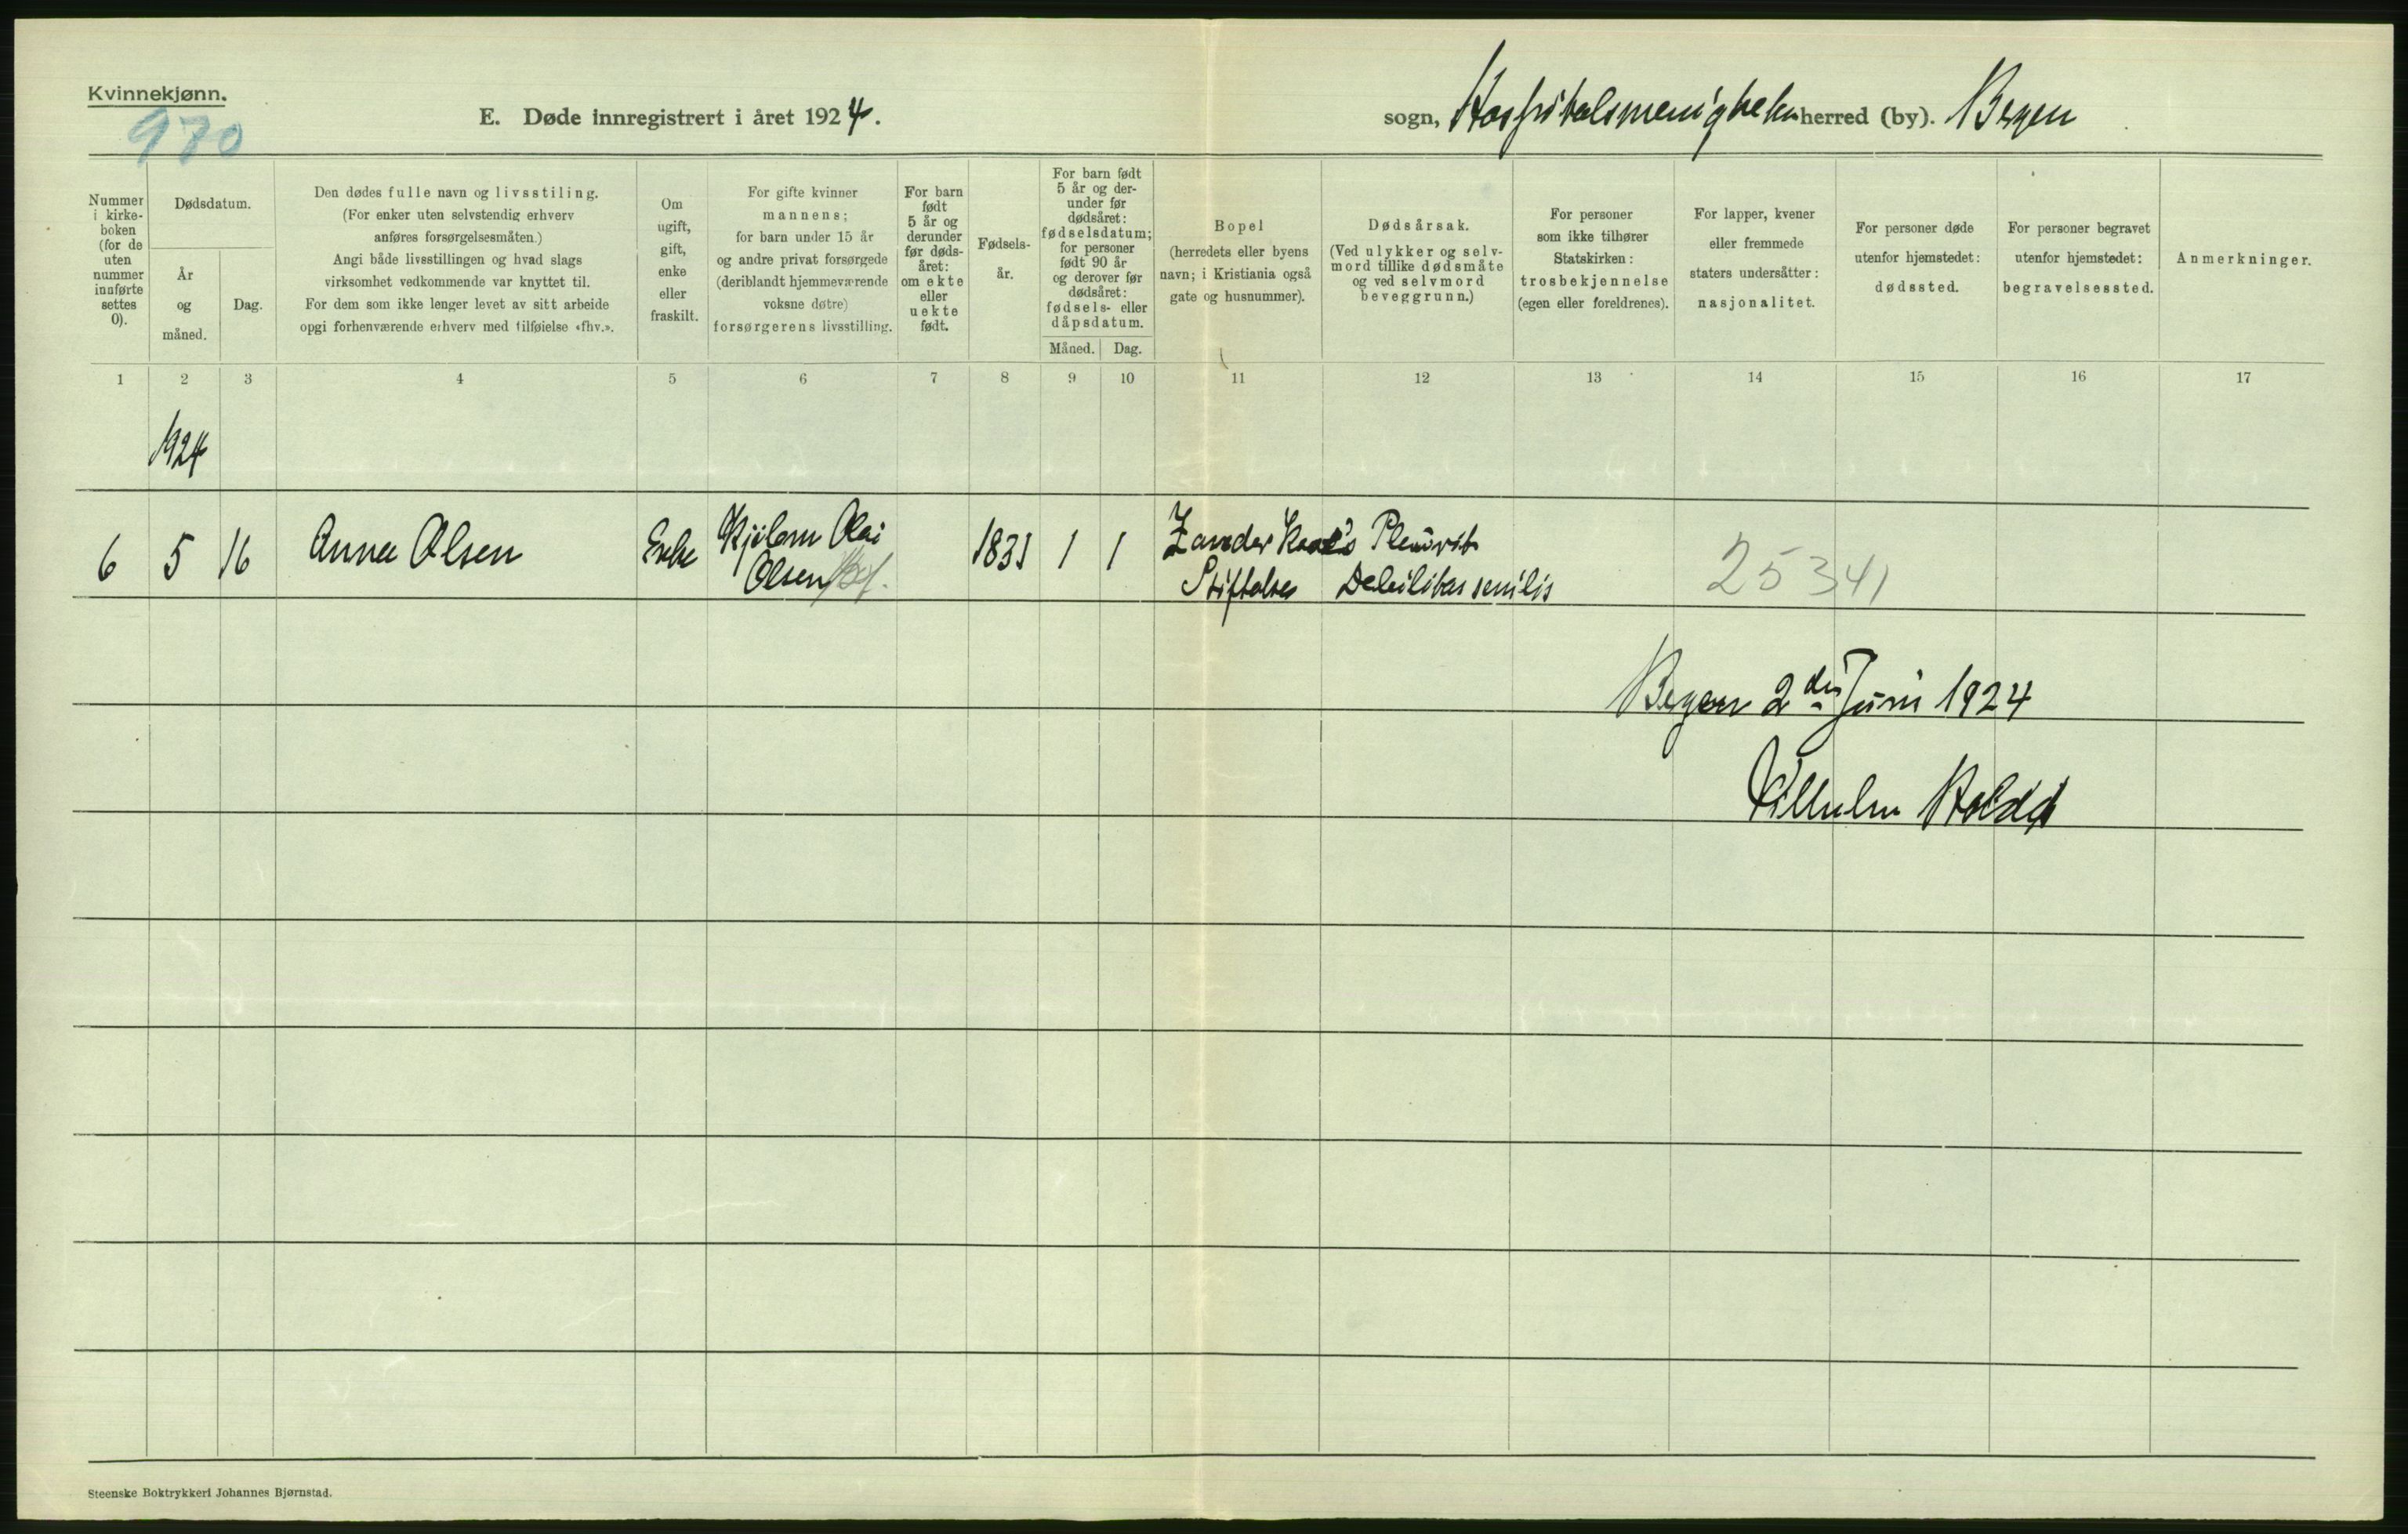 Kvinnekjønn.
970
E. Døde innregistrert i året 1924.
sogn, Hospitalsmenigheten herred (by). Bergen
Nummer i kirke- boken (for de uten nummer innførte settes 0).
Dødsdatum.
År og måned.
Dag.
Den dødes fulle navn og livsstiling.
(For enker uten selvstendig erhverv
anføres forsørgelsesmåten.)
Angi både livsstillingen og hvad slags
virksomhet vedkommende var knyttet til.
For dem som ikke lenger levet av sitt arbeide
opgi forhenværende erhverv med tilføielse «fhv.».
Om
ugift,
gift,
enke
eller
fraskilt.
For gifte kvinner
mannens;
for barn under 15 år
og andre privat forsørgede
(deriblandt hjemmeværende
voksne døtre)
forsørgerens livsstilling.
For barn
født
5 år og
derunder
før døds-
året:
om ekte
eller
uekte
født.
Fødsels-
år.
For barn født
5 år og der-
under før
dødsåret:
fødselsdatum;
for personer
født 90 år
og derover før
dødsåret:
fødsels- eller
dåpsdatum.
Måned. Dag.
Bopel
(herredets eller byens
navn; i Kristiania også
gate og husnummer).
Dødsårsak.
(Ved ulykker og selv-
mord tillike dødsmåte
og ved selvmord
beveggrunn.)
For personer
som ikke tilhører
Statskirken:
trosbekjennelse
(egen eller foreldrenes).
For lapper, kvener
eller fremmede
staters undersåtter:
nasjonalitet.
For personer døde
utenfor hjemstedet:
dødssted.
For personer begravet
utenfor hjemstedet:
begravelsessted.
Anmerkninger.
1 2 3 4 5 6 7 8 9 10 11 12 13 14 15 16 17
1924
6 5 16 Anna Olsen Enke Olai Olsen 1831 1 1 Zander Kaae's Stiftelse Pleurit Debilitas senilis
25341
Bergen 2den Juni 1924
Vilhelm Holdt
Steenske Boktrykkeri Johannes Bjørnstad.